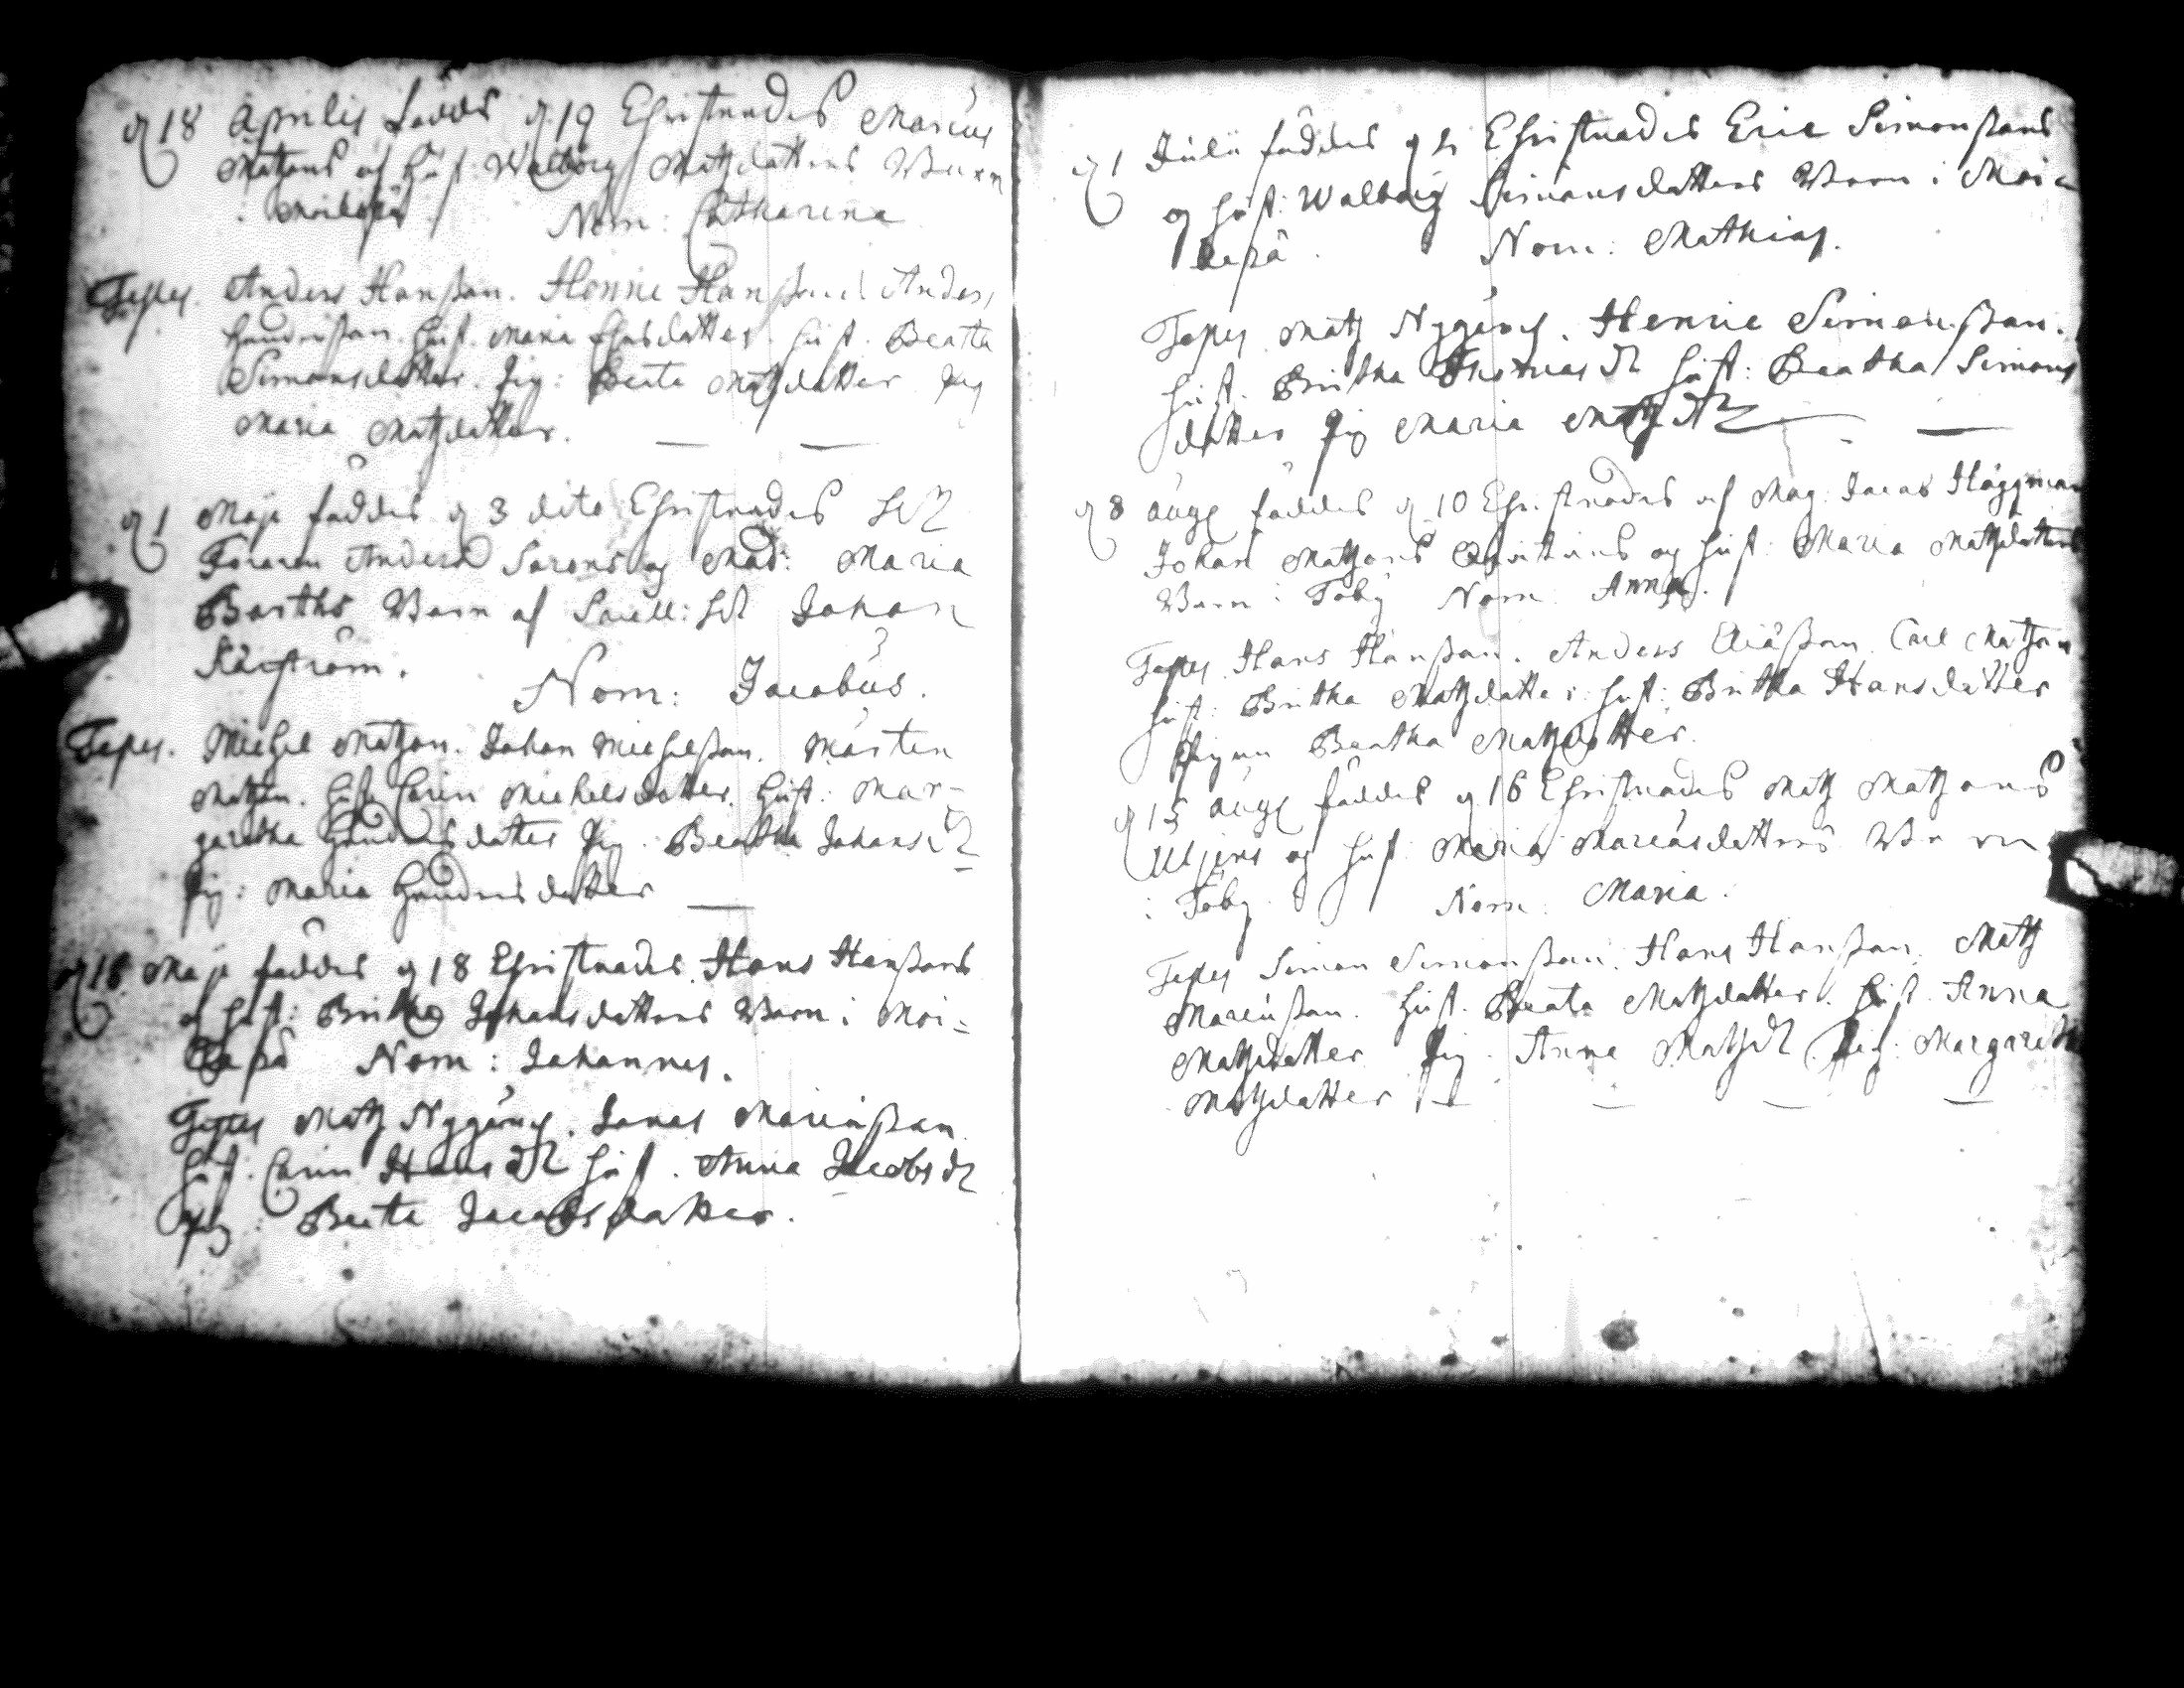 d 18 Aprilis föddes d 19 Christnades Marcus
Matzons och Hust: Walborg Matzdatters Barn
i Nom: Catharina
Testes. Anders Hansson. Henric Hansson Anders
Hendersson. Hust. Maria datter. Hust. Beata
Simonsdatter. Pig: Beata Matzdatter Pig
Maria Matzdatter.
d 1 Maji föddes d 3 dito Christnades
Anders og Mad: Maria
Barthz Barn af Johan
Nom: Jacobus.
Testes. Michel Matzon. Johan Michelsson. Mårten
Matzon. Hust. Carin Michelsdatter. Hust: Mar-
garetha Hendersdatter Pig: Beatha Johansdr
Pig: Maria Hendersdatter
d 16 Maji föddes d 18 Christnades Hans Hanssons
och Hust: Britha Johansdatters Barn i Moi=
Nom: Johannes.
Testes Matz Nygång. Jonas Marcusson
Hust. Carin Hansdr Hust. Anna Jacobsdr
Pig: Beata Jacobsdatter.
d 1 Julii föddes d Christnades Eric Simonssons
og Hust: Walborg Simonsdatters Barn i Moi
Nom: Mathias.
Testes Matz Nygång. Henric Simonsson.
Hust. Britha dr Hust: Beatha Simons
datter Pig Maria Matzdr
d 8 Aug föddes d 10 Christnades af Mag: Jacob Häggman
Johan Matzons og Hust: Maria Matzdatters
Barn i Töby Nom: Anna.
Testes Hans Hansson. Anders Eliæsson. Carl Matzon
Hust: Britha Matzdatter Hust: Britha Hansdatter
Pigan Beatha Matzdotter.
d 15 Aug föddes d 16 Christnades Matz Matzons
og Hust: Maria Marcusdatters Barn
i Töby Nom: Maria.
Testes Simon Simonsson. Hans Hansson. Matz
Marcusson. Hust. Beata Matzdatter. Hust. Anna
Matzdatter Pig. Anna Matzdr Pig: Margaretha
Matzdatter